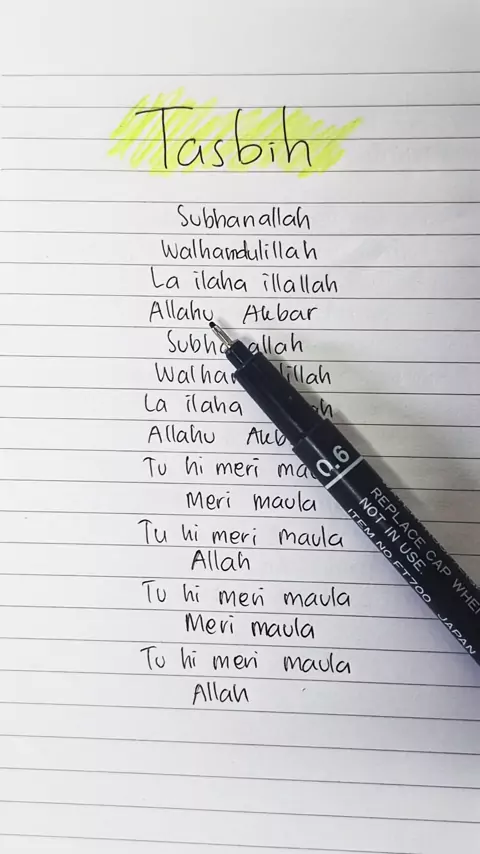 Tasbih
Subhanallah
Walhamdulillah
La ilaha illallah
Allahu Akbar
Subhanallah
La ilaha
Allahu
Tu hi meri
Meri maula
Tu hi meri maula
Allah
Tu hi meri maula
Meri maula
Tu hi meri maula
Allah
0.6
REPLACE CAP WHEN
NOT IN USE
ITEM NO. FT700 JAPAN